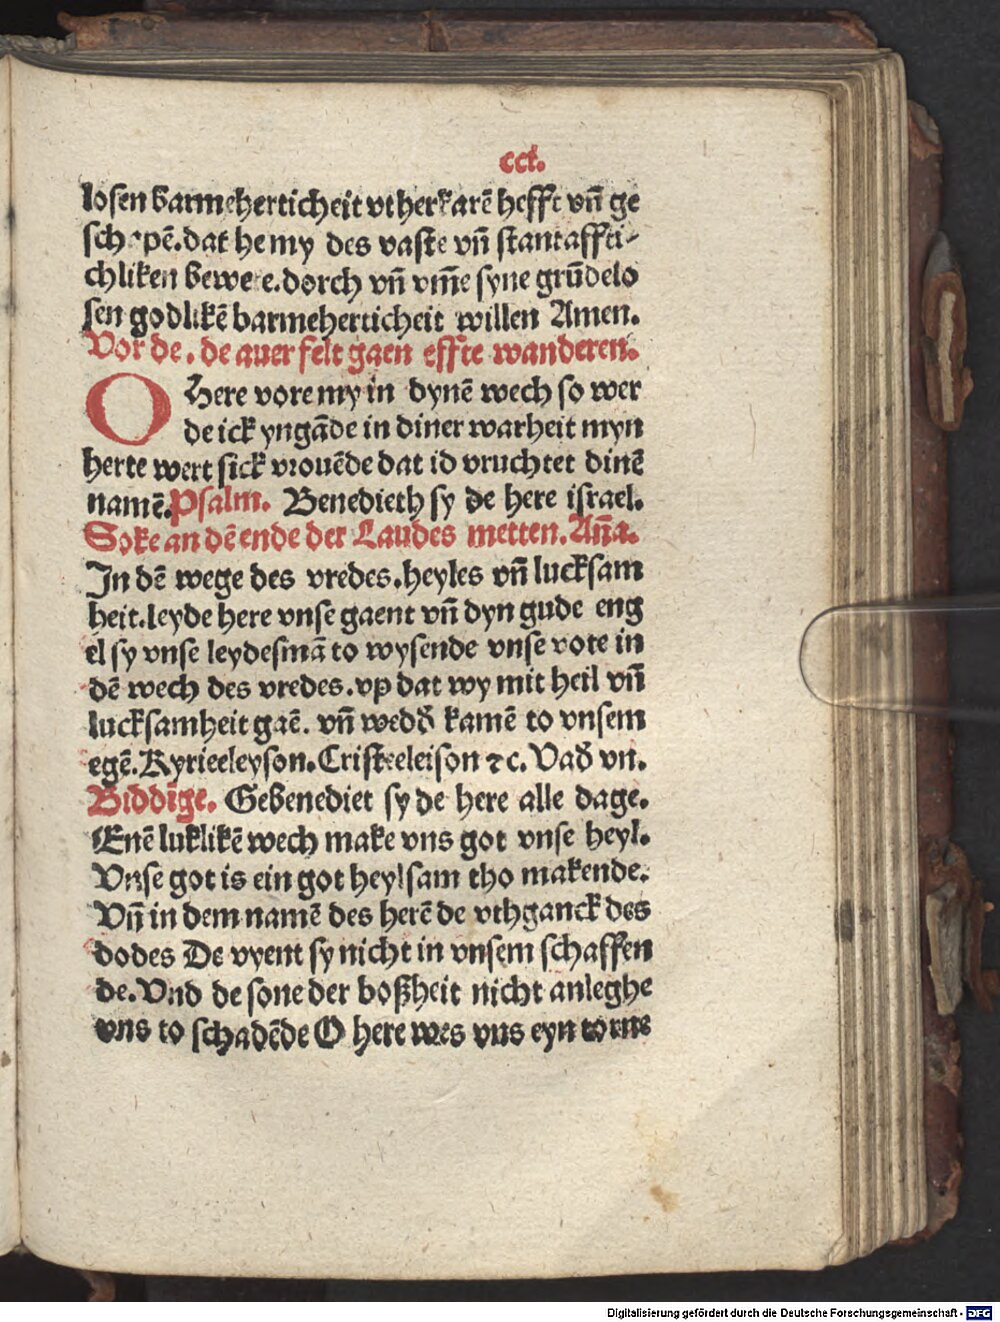 cct.
losen barmeherticheit vtherkarē hefft vn̄ ge
schapē.dat he my des vaste vn̄ stantaffti-
chliken bewere.dorch vn̄ vm̄e syne grūdelo
sen godlikē barmeherticheit willen Amen.
Vor de.de auer felt gaen effte wanderen.
O Here vore my in dynē wech so wer
de ick yngāde in diner warheit myn
herte wert sick vrouēde dat id vruchtet dinē
namē.Psalm. Benedieth sy de here israel.
Soke an dē ende der Laudes metten.Ana̅.
In dē wege des vredes.heyles vn̄ lucksam
heit.leyde here vnse gaent vn̄ dyn gude eng
el sy vnse leydesmā to wysende vnse vote in
dē wech des vredes.vp dat wy mit heil vn̄
lucksamheit gaē. vn̄ wedd̄ kamē to vnsem
egē.Kyrieeleyson.Cristeeleison ⁊c. Vad̄ vn.
Biddīge. Gebenediet sy de here alle dage.
Enē luklikē wech make vns got vnse heyl.
Vnse got is ein got heylsam tho makende.
Vn̄ in dem namē des herē de vthganck des
dodes De vyent sy nicht in vnsem schaffen
de.Vnd de sone der boßheit nicht anleghe
vns to schadēde O here wes vns eyn torne
Digitalisierung gefördert durch die Deutsche Forschungsgemeinschaft - DFG